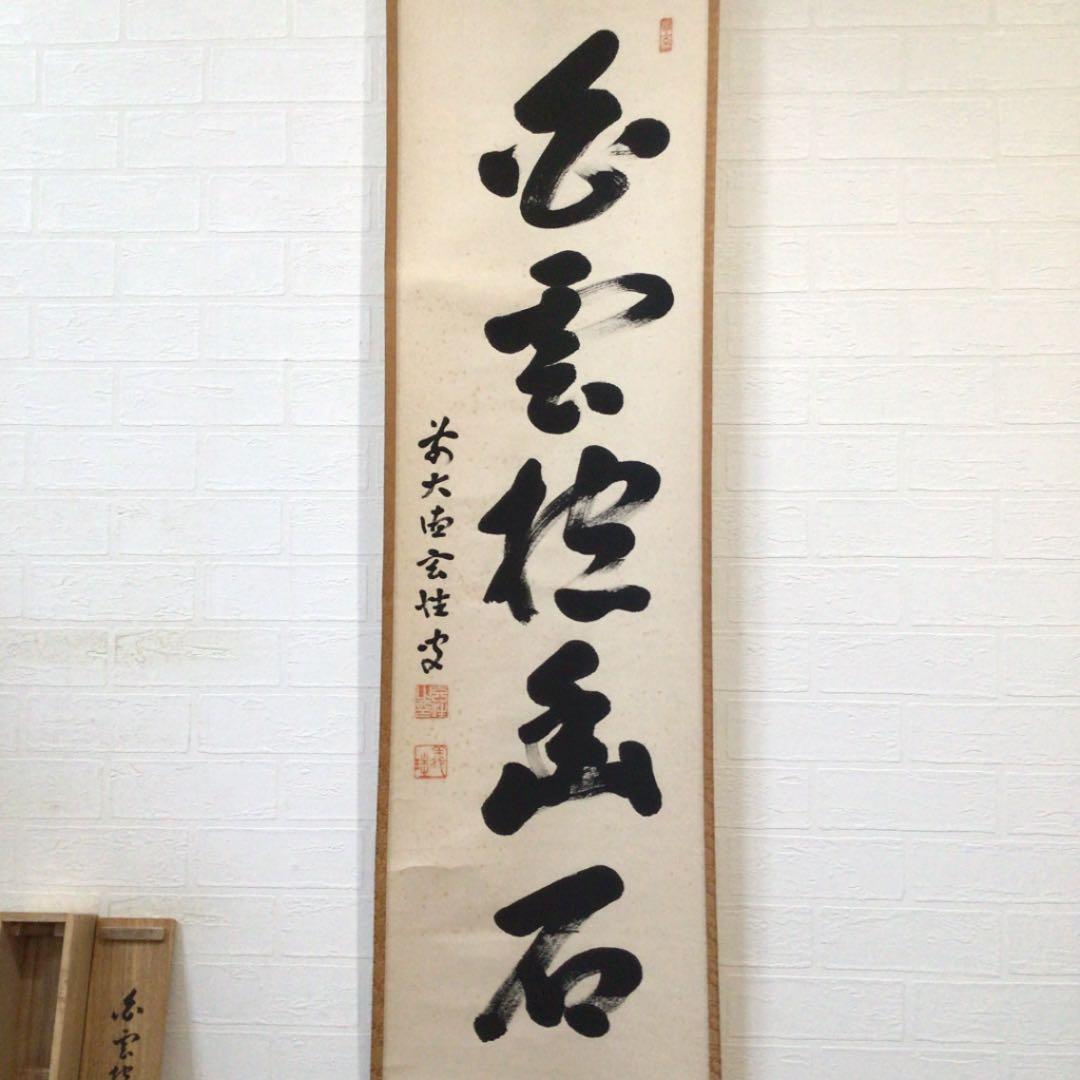 白雲抱幽石
前大徳玄性叟
白雲抱